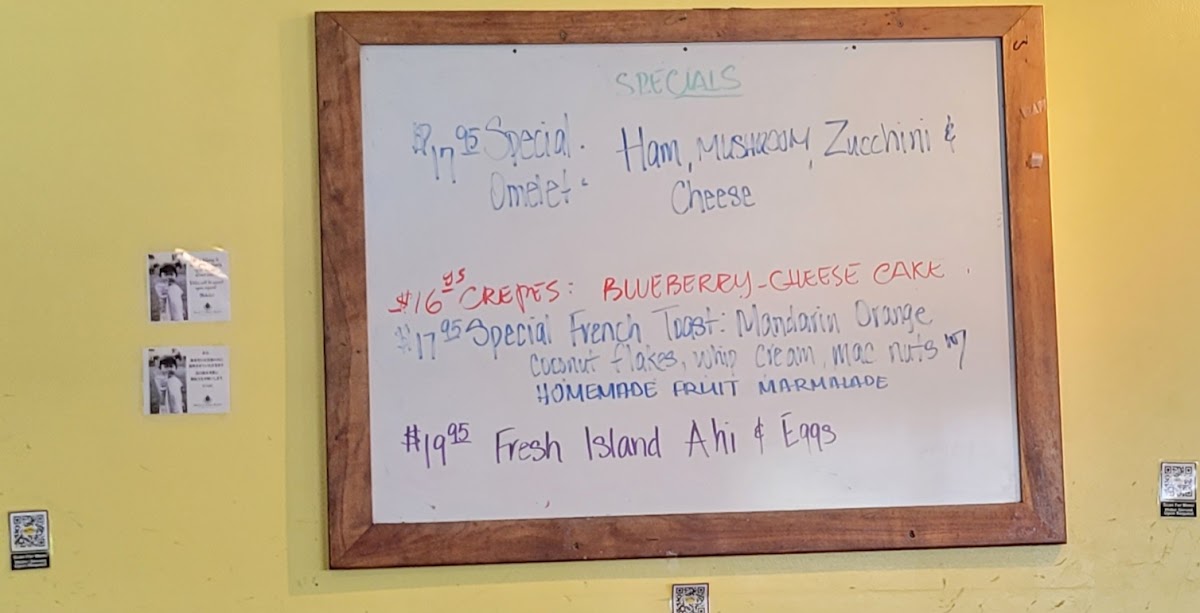 SPECIALS
$17.95 Special Omelet: Ham, MUSHROOM, Zucchini &
Cheese
$16.95 CREPES: BLUEBERRY-CHEESE CAKE.
$17.95 Special French Toast: Mandarin Orange
Coconut flakes, whip cream, mac nuts w/
HOMEMADE FRUIT MARMALADE
$19.95 Fresh Island Ahi & Eggs
Scan For Menu
Scan For Menu